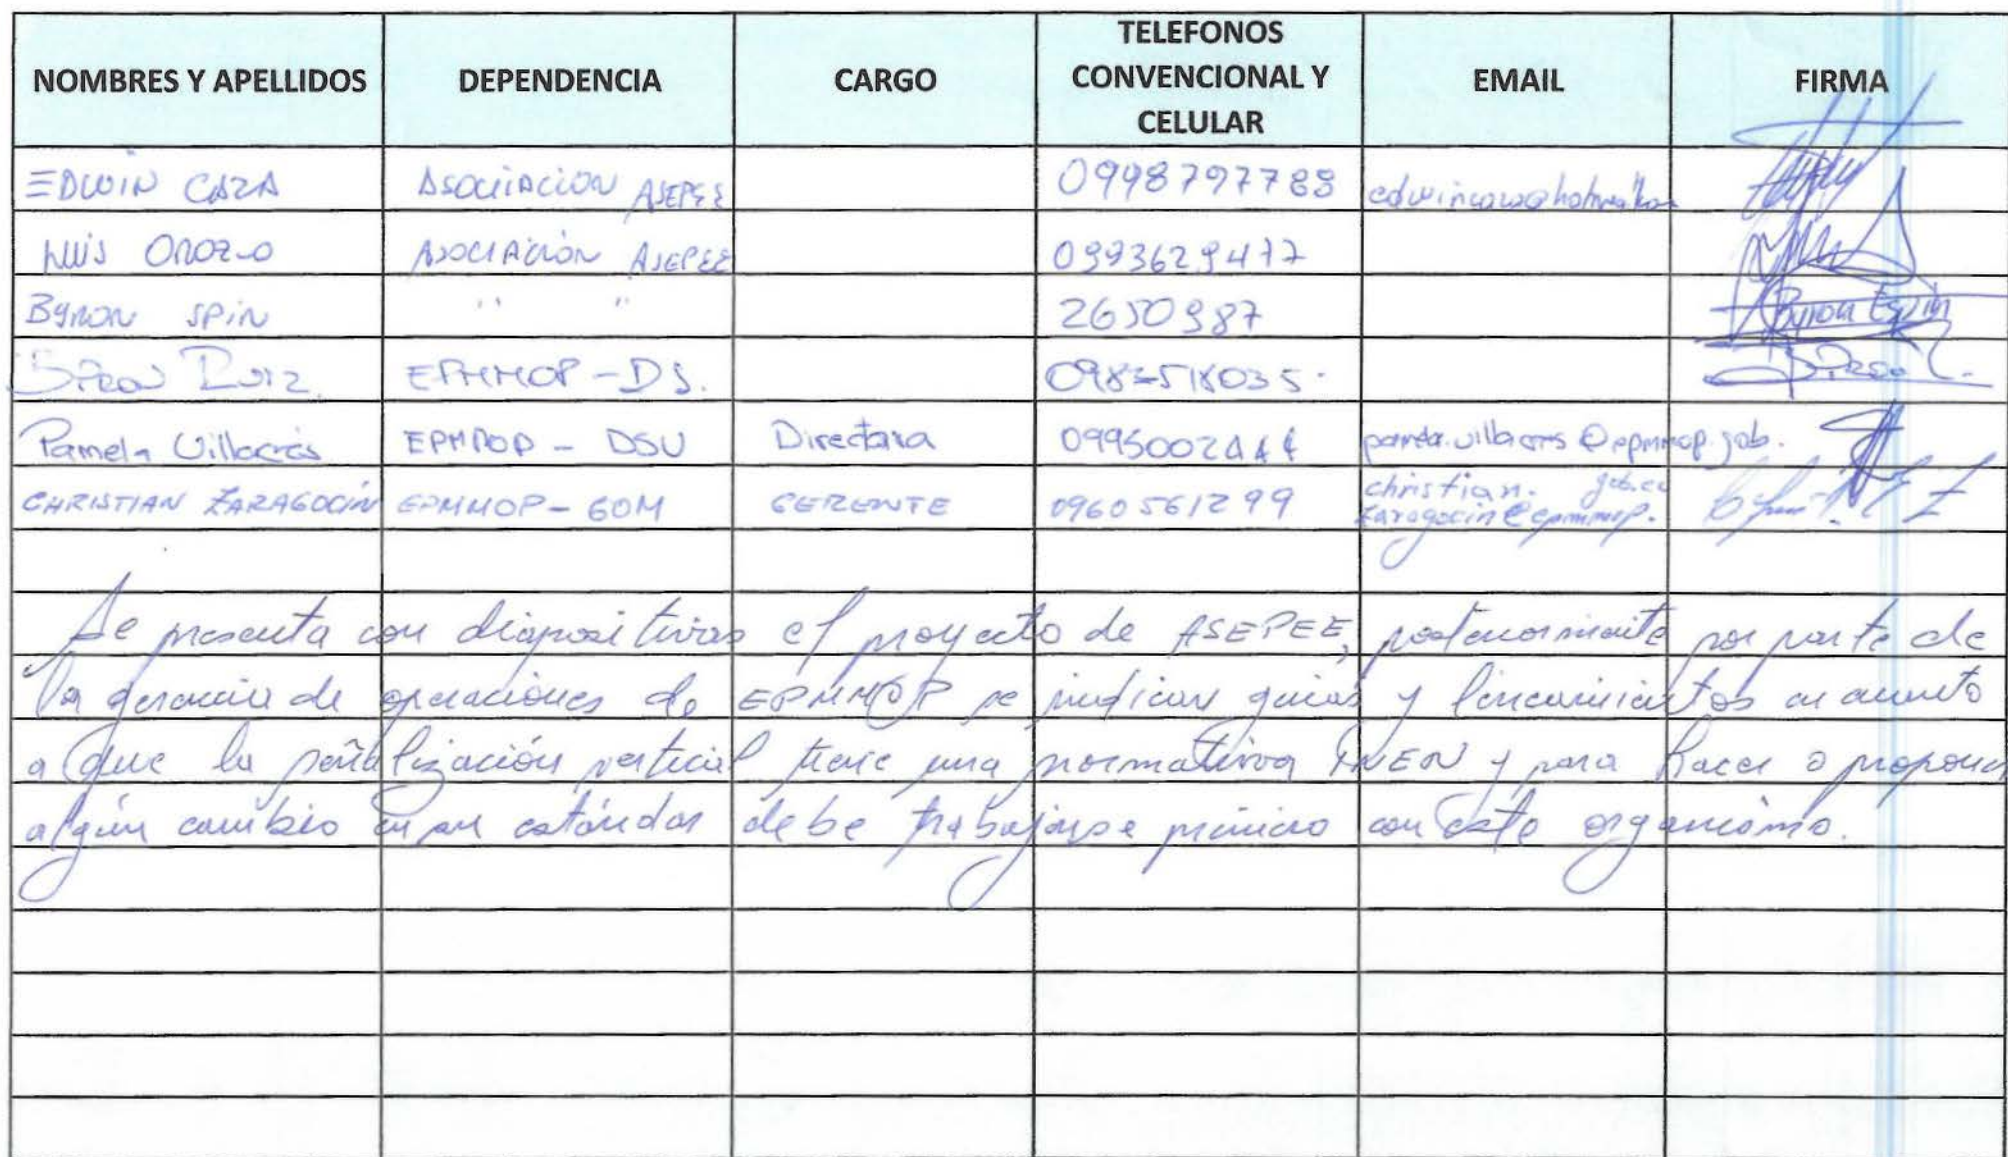 NOMBRES Y APELLIDOS DEPENDENCIA CARGO TELEFONOS CONVENCIONAL Y CELULAR EMAIL FIRMA
EDWIN CAZA ASOCIACION ASEPEE 0998797788
LUIS OROZCO ASOCIACIÓN ASEPEE
BYRON SPIN " " 2650987 Byron Espin
Ruiz. EPMMOP - DS.
Pamela Villacrés EPMMOP - DSU Directora pamela.villacres@epmmop.gob.
CHRISTIAN ZARAGOCÍN EPMMOP - GOM GERENTE 0960561299 christian. gob.ec
zaragocin@epmmop.
Se presenta con diapositivas el proyecto de ASEPEE, posteriormente por parte de
la gerencia de operaciones de EPMMOP se indican guias y lineamientos en cuanto
a que la señalización vertical tiene una normativa INEN y para hacer o proponer
algún cambio en su estándar debe trabajarse primero con este organismo.